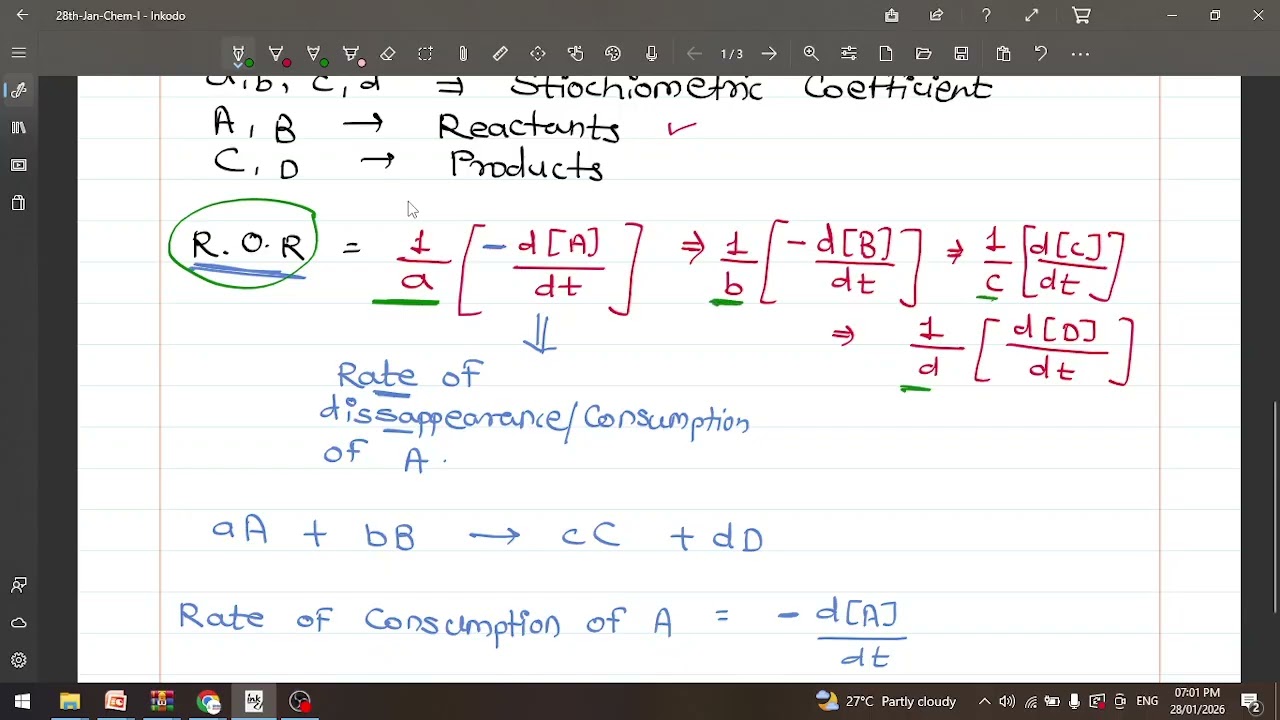 28th-Jan-Chem-I - Inkodo
1/3
a,b, c,d ⇒ Stiochiometric Coefficient
A, B → Reactants ✓
C, D → Products
R.O.R = 1/a [ - d[A]/dt ] ⇒ 1/b [ - d[B]/dt ] ⇒ 1/c [ d[C]/dt ]
⇒ 1/d [ d[D]/dt ]
⇓
Rate of
dissappearance/Consumption
of A.
aA + bB → cC + dD
Rate of Consumption of A = - d[A]/dt
27°C Partly cloudy
ENG
07:01 PM
28/01/2026
2